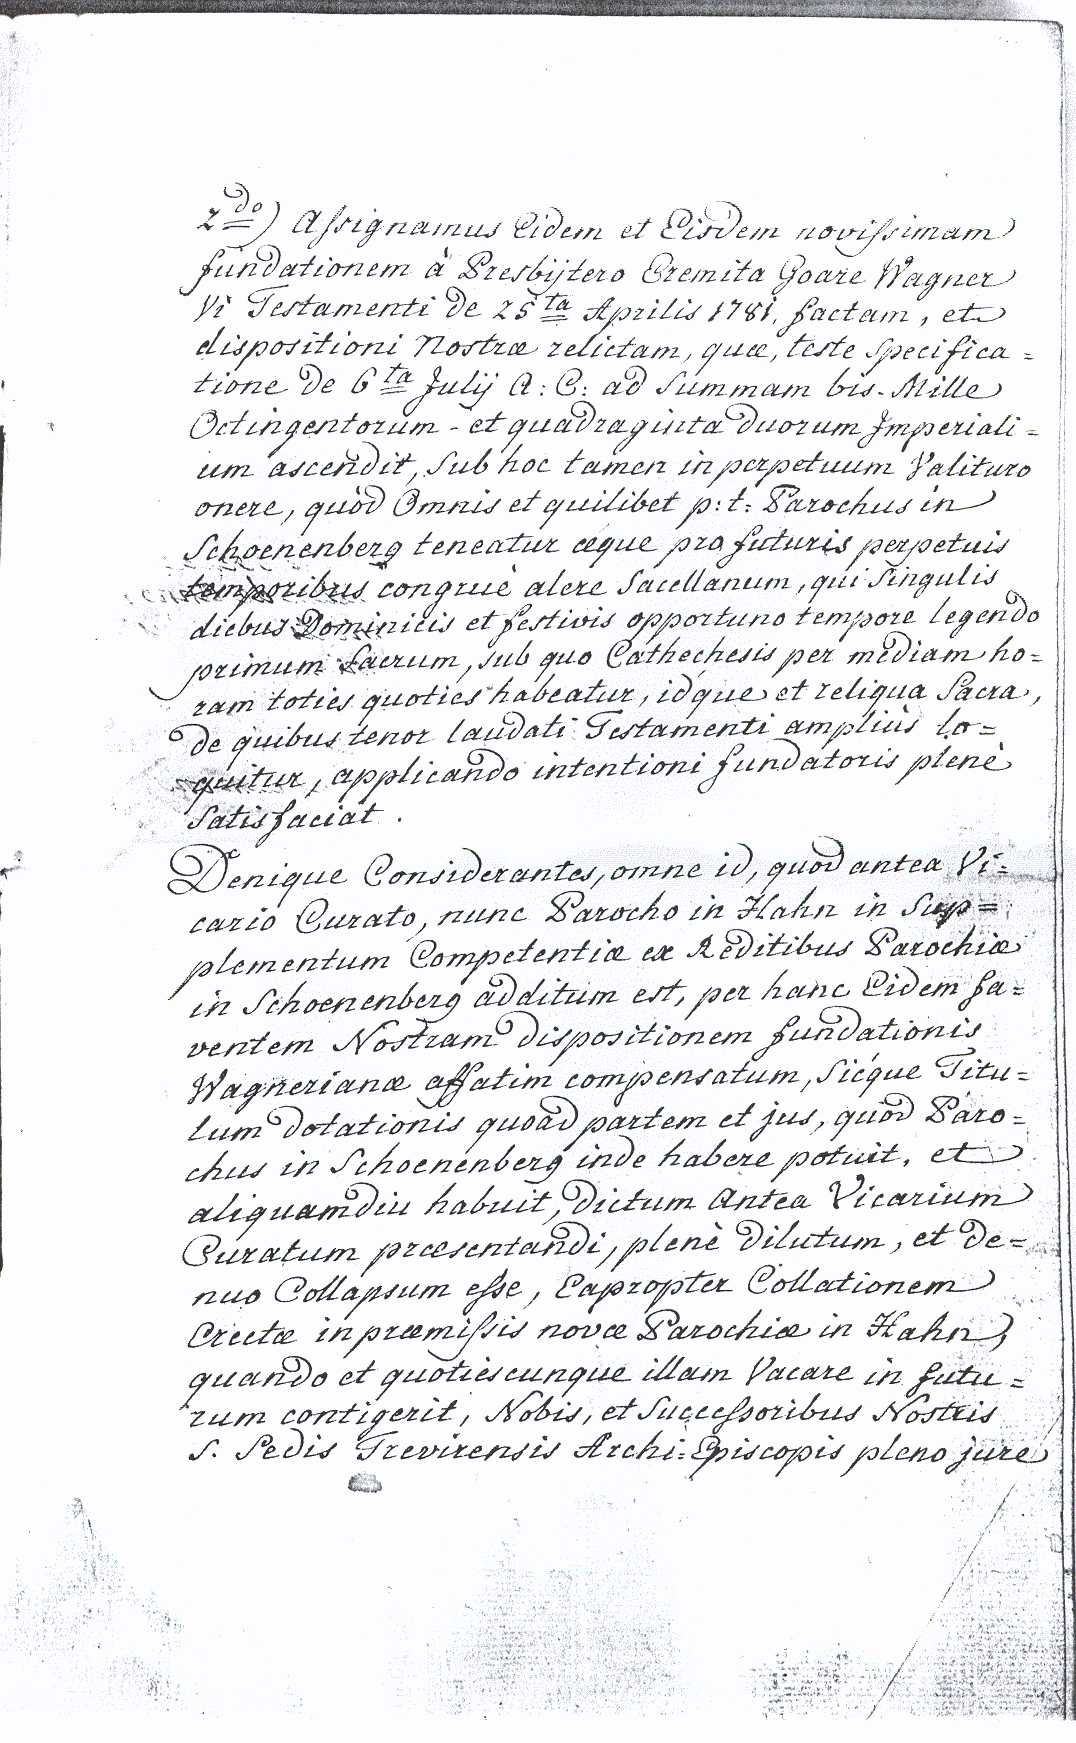 2do) Assignamus Eidem et Eisdem novissimam
fundationem à Presbÿtero Eremita Goare Wagner
Vi Testamenti de 25ta Aprilis 1781. factam, et
dispositioni Nostræ relictam, quæ, teste specifica =
tione de 6ta Julÿ A: C: ad Summam bis-Mille
Octingentorum - et quadraginta duorum Imperiali =
um ascendit, sub hoc tamen in perpetuum Valituro
onere, quòd Omnis et quilibet p: t: Parochus in
Schoenenberg teneatur æque pro futuris perpetuis
temporibus congruè alere Sacellanum, qui Singulis
diebus Dominicis et festivis opportuno tempore legendo
primum Sacrum, sub quo Cathechesis per mediam ho=
ram toties quoties habeatur, idque et reliqua Sacra,
de quibus tenor laudati Testamenti ampliùs lo=
quitur, applicando intentioni fundatoris plenè
Satisfaciat.
Denique Considerantes, omne id, quod antea Vi=
cario Curato, nunc Parocho in Hahn in Sup=
plementum Competentiæ ex Reditibus Parochiæ
in Schoenenberg additum est, per hanc Eidem fa=
ventem Nostram dispositionem fundationis
Wagnerianæ affatim compensatum, Sicque Titu=
lum dotationis quoad partem et jus, quòd Paro=
chus in Schoenenberg inde habere potuit, et
aliquamdiu habuit, dictum Antea Vicarium
Curatum præsentandi, plenè dilutum, et de=
nuo Collapsum esse, Eapropter Collationem
Erectæ in præmissis novæ Parochiæ in Hahn,
quando et quotiescunque illam Vacare in futu=
rum contigerit, Nobis, et Successoribus Nostris
S. Sedis Trevirensis Archi=Episcopis pleno jure